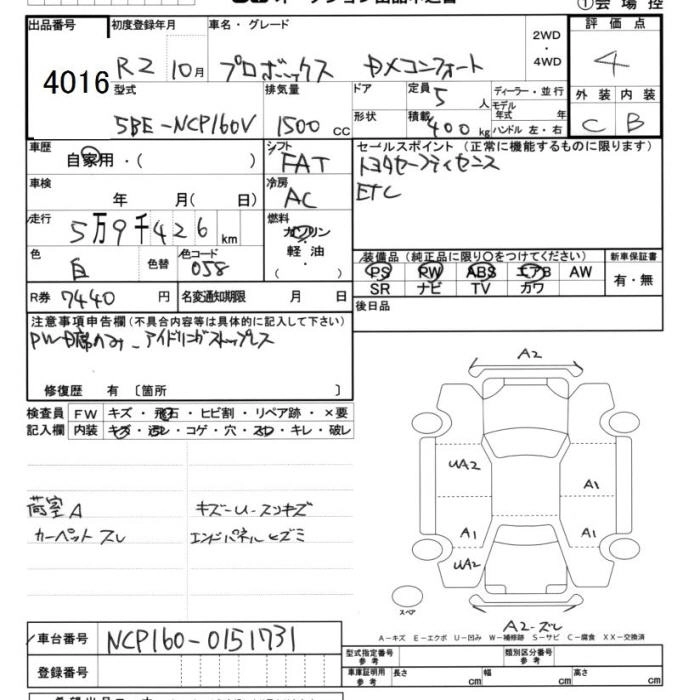 ① 会場控
出品番号 初度登録年月 車名・グレード 2WD ・ 4WD 評価点
4016 R2 10月 プロボックス DXコンフォート 4
型式 排気量 ドア 定員 5 人 ディーラー・並行 外装 内装
5BE-NCP160V 1500 cc 形状 積載 400 kg モデル年式 年 ハンドル 左・右 C B
車歴 シフト セールスポイント (正常に機能するものに限ります)
自家用・( ) FAT トヨタセーフティセンス
車検 冷房 ETC
年 月( 日) AC
走行 燃料
5万9千426 km ガソリン
色 色替 色コード 軽油 装備品 (純正品に限り〇をつけてください) 新車保証書
白 058 ・ ( ) PS PW ABS エアB AW 有・無
R券 7440 円 名変通知期限 月 日 SR ナビ TV カワ
後日品
注意事項申告欄 (不具合内容等は具体的に記入して下さい)
PW-D席のみ - アイドリングストップレス
修復歴 有 〔箇所 〕
検査員 FW キズ・飛石・ヒビ割・リペア跡・×要
記入欄 内装 キズ・汚レ・コゲ・穴・スレ・キレ・破レ
A2
UA2
A1
荷室A キズ-U-スリキズ
カーペットスレ エンドパネルヒズミ
A1 A1
UA2
スペア
A2-ズレ
A-キズ E-エクボ U-凹み W-補修跡 S-サビ C-腐食 XX-交換済
車台番号 NCP160-0151731
型式指定番号 参考 類別区分番号 参考
登録番号 車庫証明用 参考 長さ cm 幅 cm 高さ cm